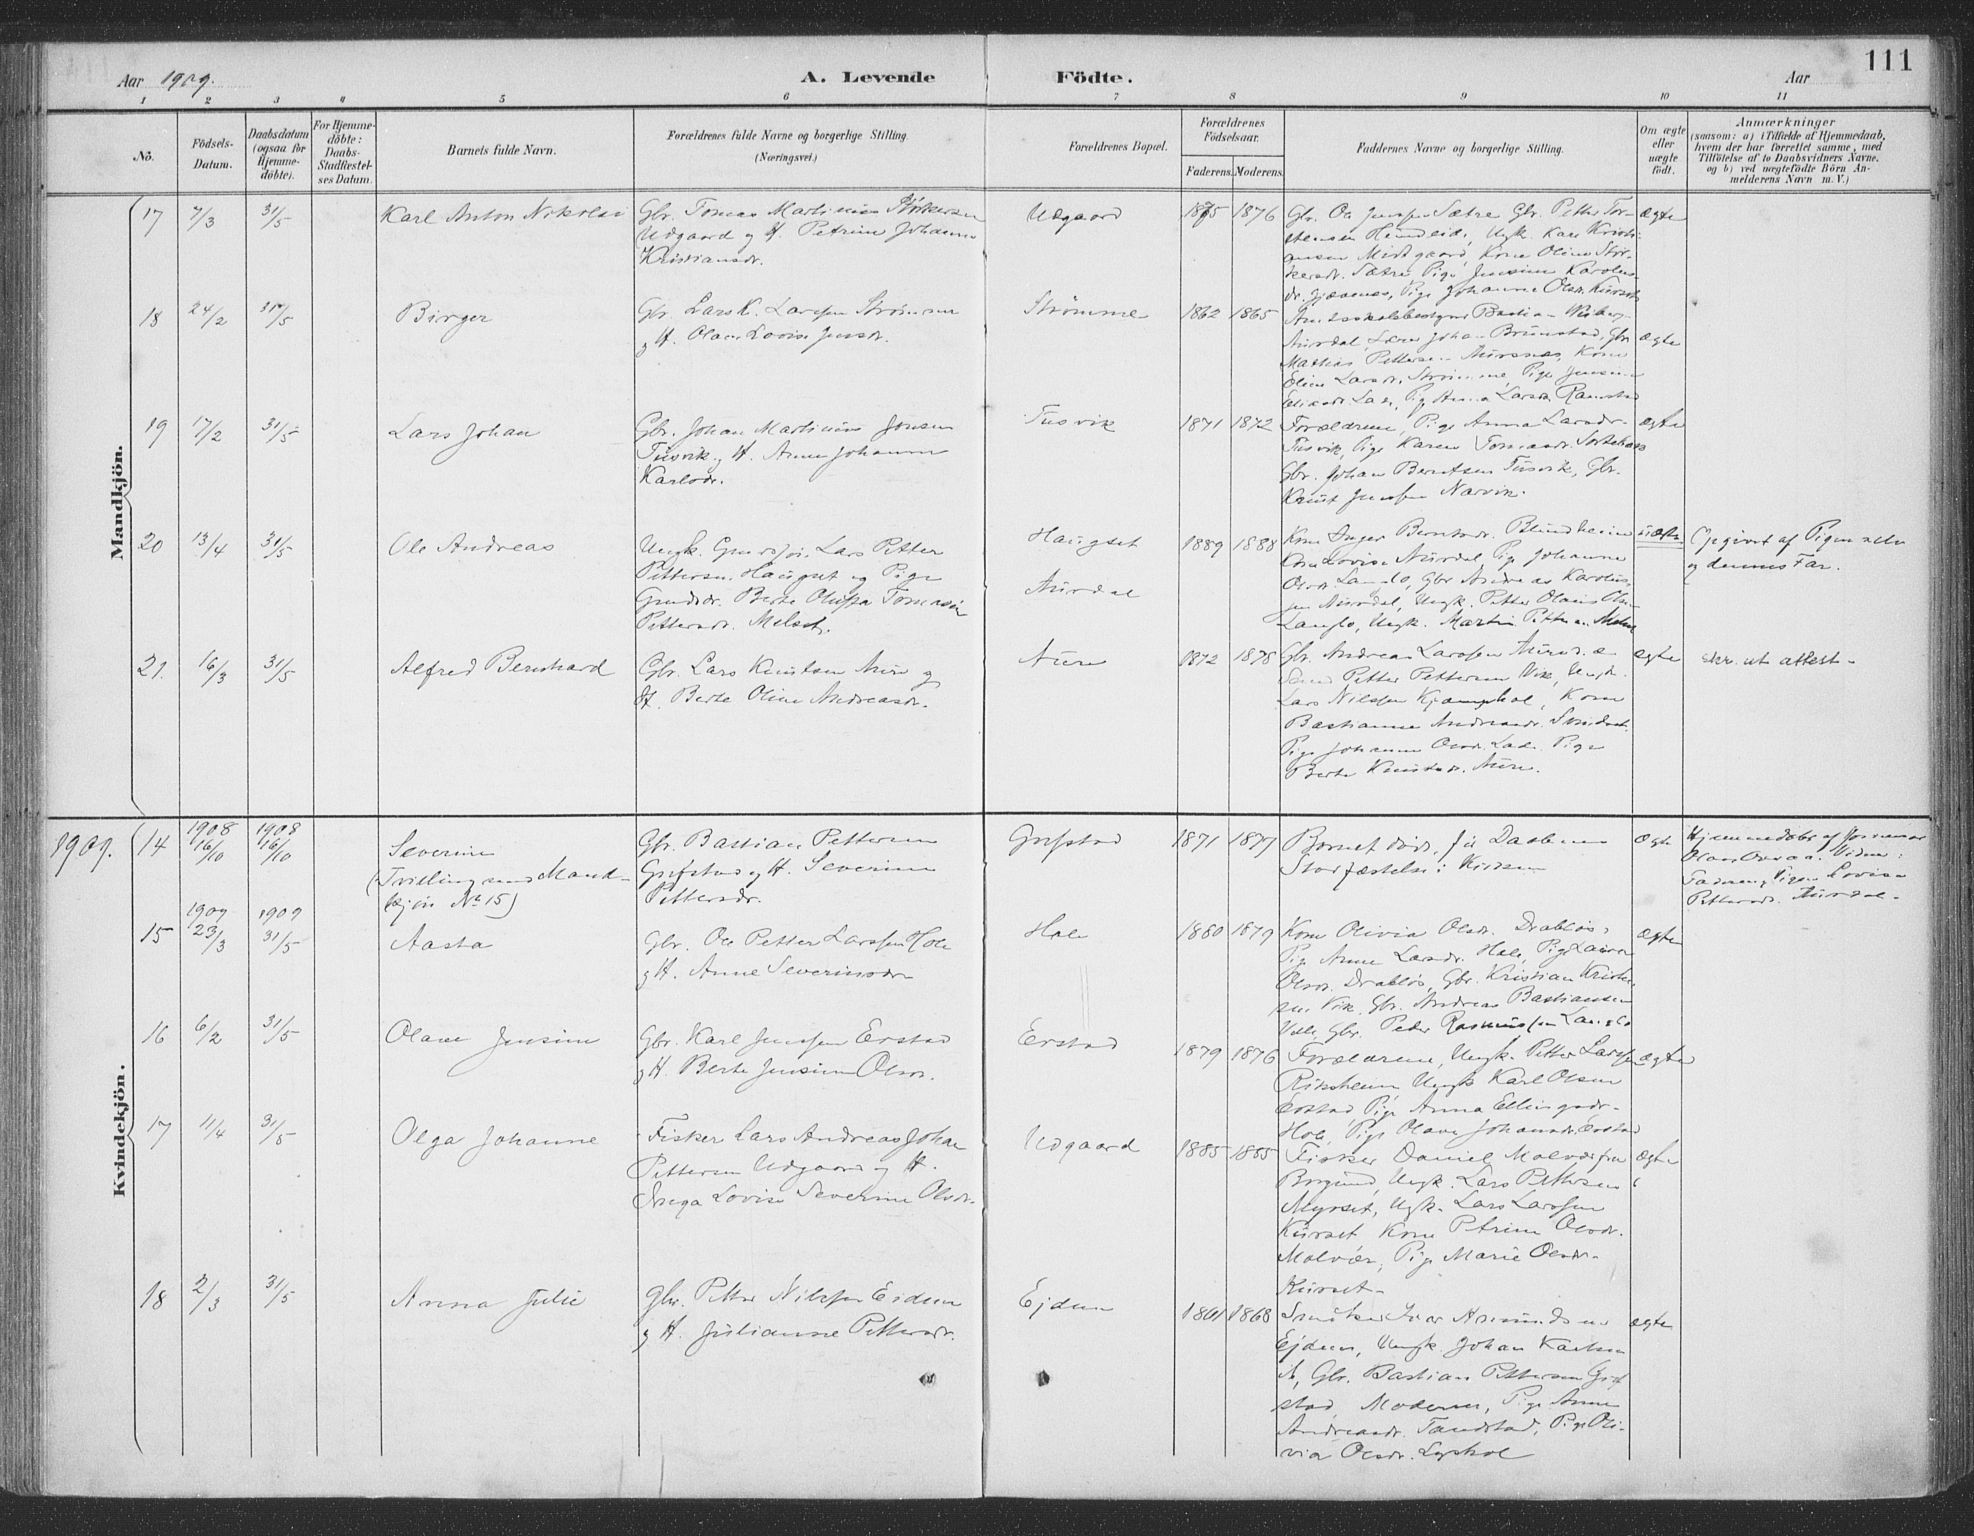 111
Aar 1909. A. Levende Födte. Aar
1 2 3 4 5 6 7 8 9 10 11
No.
Födsels-
Datum.
Daabsdatum
(ogsaa for
Hjemme-
döbte).
For Hjemme-
döbte:
Daabs-
Stadfæstel-
ses Datum.
Barnets fulde Navn.
Forældrenes fulde Navne og borgerlige Stilling.
(Næringsvei.)
Forældrenes Bopæl.
Forældrenes
Födselsaar.
Faderens. Moderens.
Faddernes Navne og borgerlige Stilling.
Om ægte
eller
uægte
födt.
Anmærkninger
(saasom: a) i Tilfælde af Hjemmedaab,
hvem der har forrettet samme, med
Tilföielse af to Daabsvidners Navne,
og b) ved uægtefödte Börn An-
melderens Navn m. V.)
Mandkjön.
17 7/3 31/5 Karl Anton Nikolai
Gbr. Tomas Martinius Störkersen
Udgaard og H. Petrine Johanne
Kristiansdr.
Udgaard 1875 1876
Gbr. Ole Jenssen Sætre Gbr. Petter Tor-
stensen Hundeide, Ungk. Karl Kristi-
ansen Midtgaard, Kone Oline Stör-
kersdr. Sætre Pige Jensine Karolus-
dr. Gjævenes, Pige Johanne Olsdr. Kurset
ægte
18 24/2 31/5 Birger
Gbr. Lars K. Larssen Strömmen
og H. Olave Lovise Jensdr.
Strömme 1862 1865
Amtsskolebestyrer Bastian Viberg
Aurdal, Lærer Johan Brunstad, Gbr.
Mathias Pettersen Aursnes, Kone
Eline Larsdr. Strömme, Pige Jensine
Lade, Pige Anna Larsdr. Ramstad
ægte
19 17/2 31/5 Lars Johan
Gbr. Johan Martinius Jensen
Tusvik og H. Anne Johanne
Karlsdr.
Tusvik 1871 1872
Forældrene, Pige Anna Larsdr.
Tusvik, Pige Karen Tomasdr. Sortehaug
Gbr. Johan Berntsen Tusvik, Gbr.
Knut Jenssen Narvik.
ægte
20 13/4 31/5 Ole Andreas
Ungk. Lars Petter
Pettersen Haugset og Pige
Grudsdr. Berte Olufsa Tomasine
Pettersdr. Melset.
Haugset
Aurdal
1889 1888
Kone Inger Berntsdr. Blindheim
Kone Lovise Aurdal, Pige Johanne
Olsdr. Langlo, Gbr. Andreas Karolus-
sen Aurdal, Ungk. Petter Olaus Olsen
Langlo, Ungk. Martin Pettersen
uægte
Opgivet af Pigen selv
og dennes Far.
21. 16/3 31/5 Alfred Bernhard
Gbr. Lars Knutsen Aure og
H. Berte Oline Andreasdr.
Aure 1872 1878
Gbr. Andreas Larssen Aure
Petter Pettersen Vik, Ungk.
Lars Nilssen Kjæmphol, Kone
Bastianne Andreasdr.
Pige Johanne Olsdr. Lade. Pige
Berte Knutsdr. Aure.
ægte
skr. ut attest.
1909.
Kvindekjön.
14 1908 16/10 1908 16/10 Severine
(Tvilling med Mand-
kjön No 15)
Gbr. Bastian Pettersen
Grefstad og H. Severine
Pettersdr.
Grefstad 1871 1877
Barnet döde för Daabens
Stadfæstelse i Kirken
ægte
Hjemmedöbt af Jordmor
Olave Vidner:
Faderen og Pigen Lovise
Pettersdr. Aurdal.
15 1909 23/3 1909 31/5 Aasta
Gbr. Ole Petter Larssen Hole
og H. Anne Severinsdr.
Hole 1880 1879
Kone Olivia Olsdr. Dravlös,
Pige Anne Larsdr. Hole, Pige Laura
Olsdr. Dravlös, Gbr. Kristian Kristen-
sen Vik, Gbr. Andreas Bastiansen
Gbr. Peder Rasmussen Langlo
ægte
16 6/2 31/5 Olave Jensine
Gbr. Karl Jenssen Erstad
og H. Berte Jensine Olsdr.
Erstad 1879 1876
Forældrene, Ungk. Petter Larssen
Riksheim Ungk. Karl Olsen
Erstad Pige Anna Ellingsdr.
Hole, Pige Olave Johansdr. Erstad
ægte
17 11/4 31/5 Olga Johanne
Fisker Lars Andreas Johan
Pettersen Udgaard og H.
Inga Lovise Severine Olsdr.
Udgaard 1885 1885
Fisker Daniel Molvær fra
Borgund, Ungk. Lars Pettersen
Myrset, Ungk. Lars Larssen
Kurset Kone Petrine Olsdr.
Molvær, Pige Marie Olsdr.
Kurset.
ægte
18 2/3 31/5 Anna Julie
Gbr. Petter Nilssen Eidem
og H. Julianne Pettersdr.
Ejdem 1861 1868
Snedker Ivar Amundsen
Ejdem, Ungk. Johan Karlsen
Gbr. Bastian Pettersen Gref-
stad Moderen, Pige Anne
Andreasdr. Tandstad, Pige Oli-
via Olsdr. Lyshol
ægte